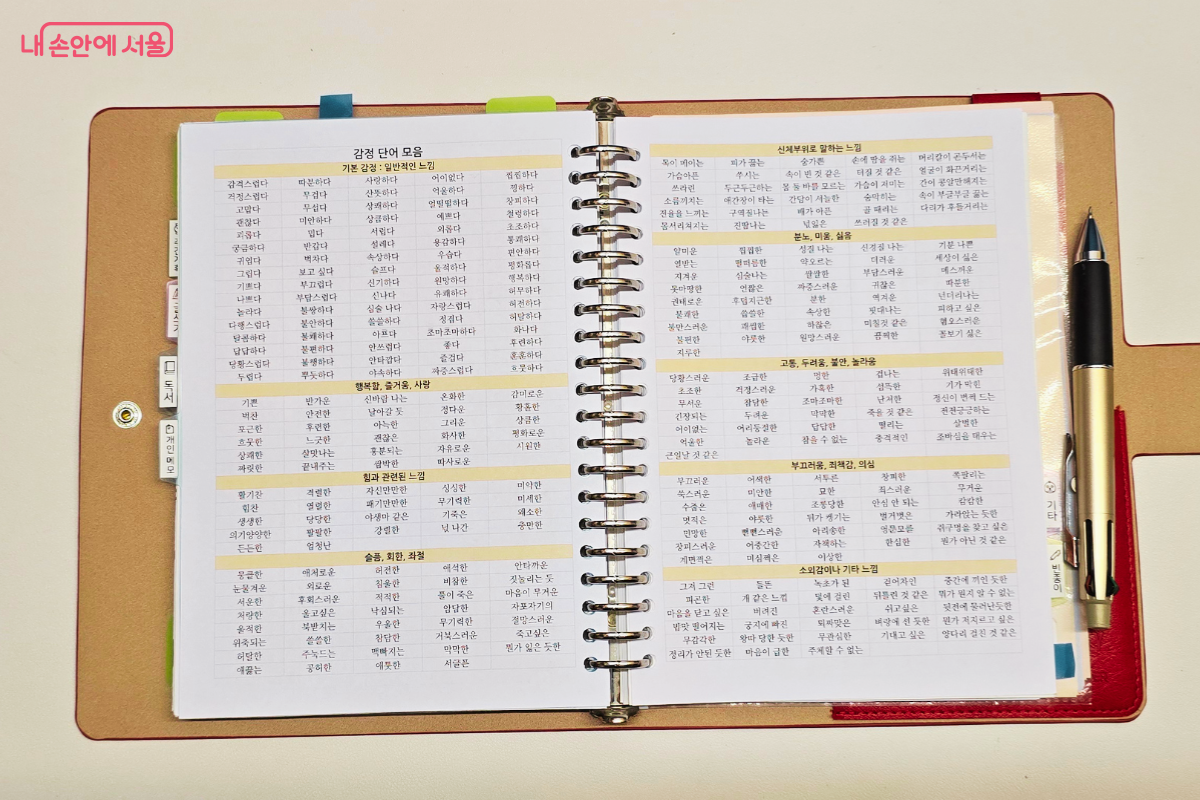 내 손안에 서울
감정 단어 모음
기본 감정 : 일반적인 느낌
감격스럽다 따분하다 사랑하다 어이없다 찝찝하다
걱정스럽다 무겁다 산뜻하다 억울하다 찡하다
고맙다 무섭다 상쾌하다 얼떨떨하다 창피하다
괜찮다 미안하다 상큼하다 예쁘다 철렁하다
괴롭다 밉다 서럽다 외롭다 초조하다
궁금하다 반갑다 설레다 용감하다 통쾌하다
귀엽다 벅차다 속상하다 우습다 편안하다
그립다 보고 싶다 슬프다 울적하다 평화롭다
기쁘다 부끄럽다 신기하다 원망하다 행복하다
나쁘다 부담스럽다 신나다 유쾌하다 허무하다
놀라다 불쌍하다 심술 나다 자랑스럽다 허전하다
다행스럽다 불안하다 쓸쓸하다 정겹다 허탈하다
달콤하다 불쾌하다 아프다 조마조마하다 화나다
답답하다 불편하다 안쓰럽다 좋다 후련하다
당황스럽다 불행하다 안타깝다 즐겁다 훈훈하다
두렵다 뿌듯하다 야속하다 짜증스럽다 흐뭇하다
행복함, 즐거움, 사랑
기쁜 반가운 신바람 나는 온화한 감미로운
벅찬 안전한 날아갈 듯 정다운 황홀한
포근한 후련한 아늑한 그리운 상큼한
흐뭇한 느긋한 괜찮은 화사한 평화로운
상쾌한 살맛나는 흥분되는 자유로운 시원한
짜릿한 끝내주는 쌈박한 따사로운
힘과 관련된 느낌
활기찬 격렬한 자신만만한 싱싱한 미약한
힘찬 열렬한 패기만만한 무기력한 미세한
생생한 당당한 야생마 같은 기죽은 왜소한
의기양양한 팔팔한 강렬한 넋 나간 충만한
든든한 엄청난
슬픔, 회한, 좌절
뭉클한 애처로운 허전한 애석한 안타까운
눈물겨운 외로운 침울한 비참한 짓눌리는 듯
서운한 후회스러운 처절한 풀이 죽은 마음이 무거운
처량한 울고싶은 낙심되는 암담한 자포자기의
울적한 북받치는 우울한 무기력한 절망스러운
위축되는 쓸쓸한 참담한 거북스러운 죽고싶은
허탈한 주눅드는 맥빠지는 막막한 뭔가 잃은 듯한
애끓는 공허한 애틋한 서글픈
신체부위로 말하는 느낌
목이 메이는 피가 끓는 숨가쁜 손에 땀을 쥐는 머리칼이 곤두서는
가슴아픈 쑤시는 속이 빈 것 같은 터질 것 같은 얼굴이 화끈거리는
쓰라린 두근두근하는 몸 둘 바를 모르는 가슴이 저미는 간이 콩알만해지는
소름끼치는 애간장이 타는 간담이 서늘한 숨막히는 속이 부글부글 끓는
전율을 느끼는 구역질나는 배가 아픈 골 때리는 다리가 후들거리는
몸서리쳐지는 진땀나는 넋잃은 쓰러질 것 같은
분노, 미움, 싫음
얄미운 찝찝한 성질 나는 신경질 나는 기분 나쁜
열받는 떨떠름한 약오르는 더러운 세상이 싫은
지겨운 심술나는 깜깜한 부담스러운 메스꺼운
못마땅한 언짢은 짜증스러운 귀찮은 따분한
권태로운 후덥지근한 분한 역겨운 넌더리나는
불쾌한 쓸쓸한 속상한 핏대나는 피하고 싶은
불만스러운 괘씸한 하찮은 미칠것 같은 혐오스러운
불편한 야릇한 원망스러운 끔찍한 꼴보기 싫은
지루한
고통, 두려움, 불안, 놀라움
당황스러운 조급한 멍한 겁나는 위태위태한
초조한 걱정스러운 가혹한 섬뜩한 기가 막힌
무서운 참담한 조마조마한 난처한 정신이 번쩍 드는
긴장되는 두려운 막막한 죽을 것 같은 전전긍긍하는
어이없는 어리둥절한 답답한 떨리는 살벌한
억울한 놀라운 참을 수 없는 충격적인 조바심을 태우는
큰일날 것 같은
부끄러움, 죄책감, 의심
부끄러운 어색한 서투른 창피한 쪽팔리는
쑥스러운 미안한 묘한 죄스러운 무거운
수줍은 애매한 조롱당한 안심 안 되는 캄캄한
멋적은 야릇한 뒤가 켕기는 별거벗은 가라앉는 듯한
민망한 뻔뻔스러운 아리송한 영문모를 쥐구멍을 찾고 싶은
창피스러운 어중간한 자책하는 한심한 뭔가 아닌 것 같은
계면쩍은 미심쩍은 이상한
소외감이나 기타 느낌
그저 그런 들뜬 녹초가 된 뒤어자인 중간에 끼인 듯한
따끈한 개 같은 느낌 덫에 걸린 뒤틀린 것 같은 뭐가 뭔지 알 수 없는
마음을 닫고 싶은 버려진 혼란스러운 쉬고싶은 뒷전에 물러난듯한
밥맛 떨어지는 궁지에 빠진 퇴짜맞은 벼랑에 선 듯한 뭔가 저지르고 싶은
무감각한 왕따 당한 듯한 무관심한 기대고 싶은 양다리 걸친 것 같은
정리가 안된 듯한 마음이 급한 주체할 수 없는
독서
개인메모
기타